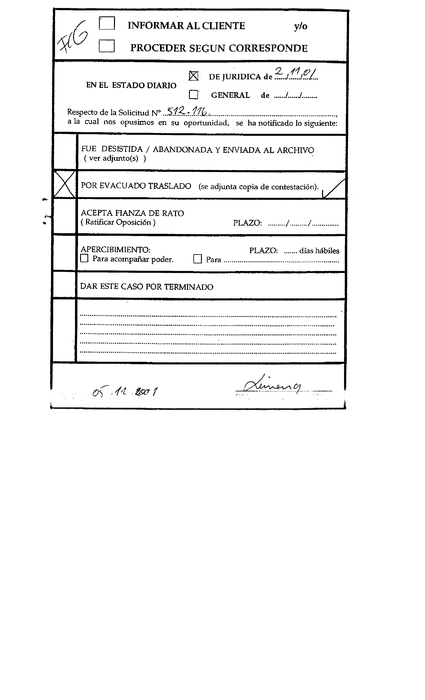 INFORMAR AL CLIENTE y/o
PROCEDER SEGUN CORRESPONDE
EN EL ESTADO DIARIO
DE JURIDICA de 2,11,01
GENERAL de ...../...../.......
Respecto de la Solicitud Nº 512.116
a la cual nos opusimos en su oportunidad, se ha notificado lo siguiente:
FUE DESISTIDA / ABANDONADA Y ENVIADA AL ARCHIVO
( ver adjunto(s) )
POR EVACUADO TRASLADO (se adjunta copia de contestación).
ACEPTA FIANZA DE RATO
( Ratificar Oposición ) PLAZO: ......./......./............
APERCIBIMIENTO: PLAZO: ...... días hábiles
Para acompañar poder. Para ..........................................
DAR ESTE CASO POR TERMINADO
05 .11 2001